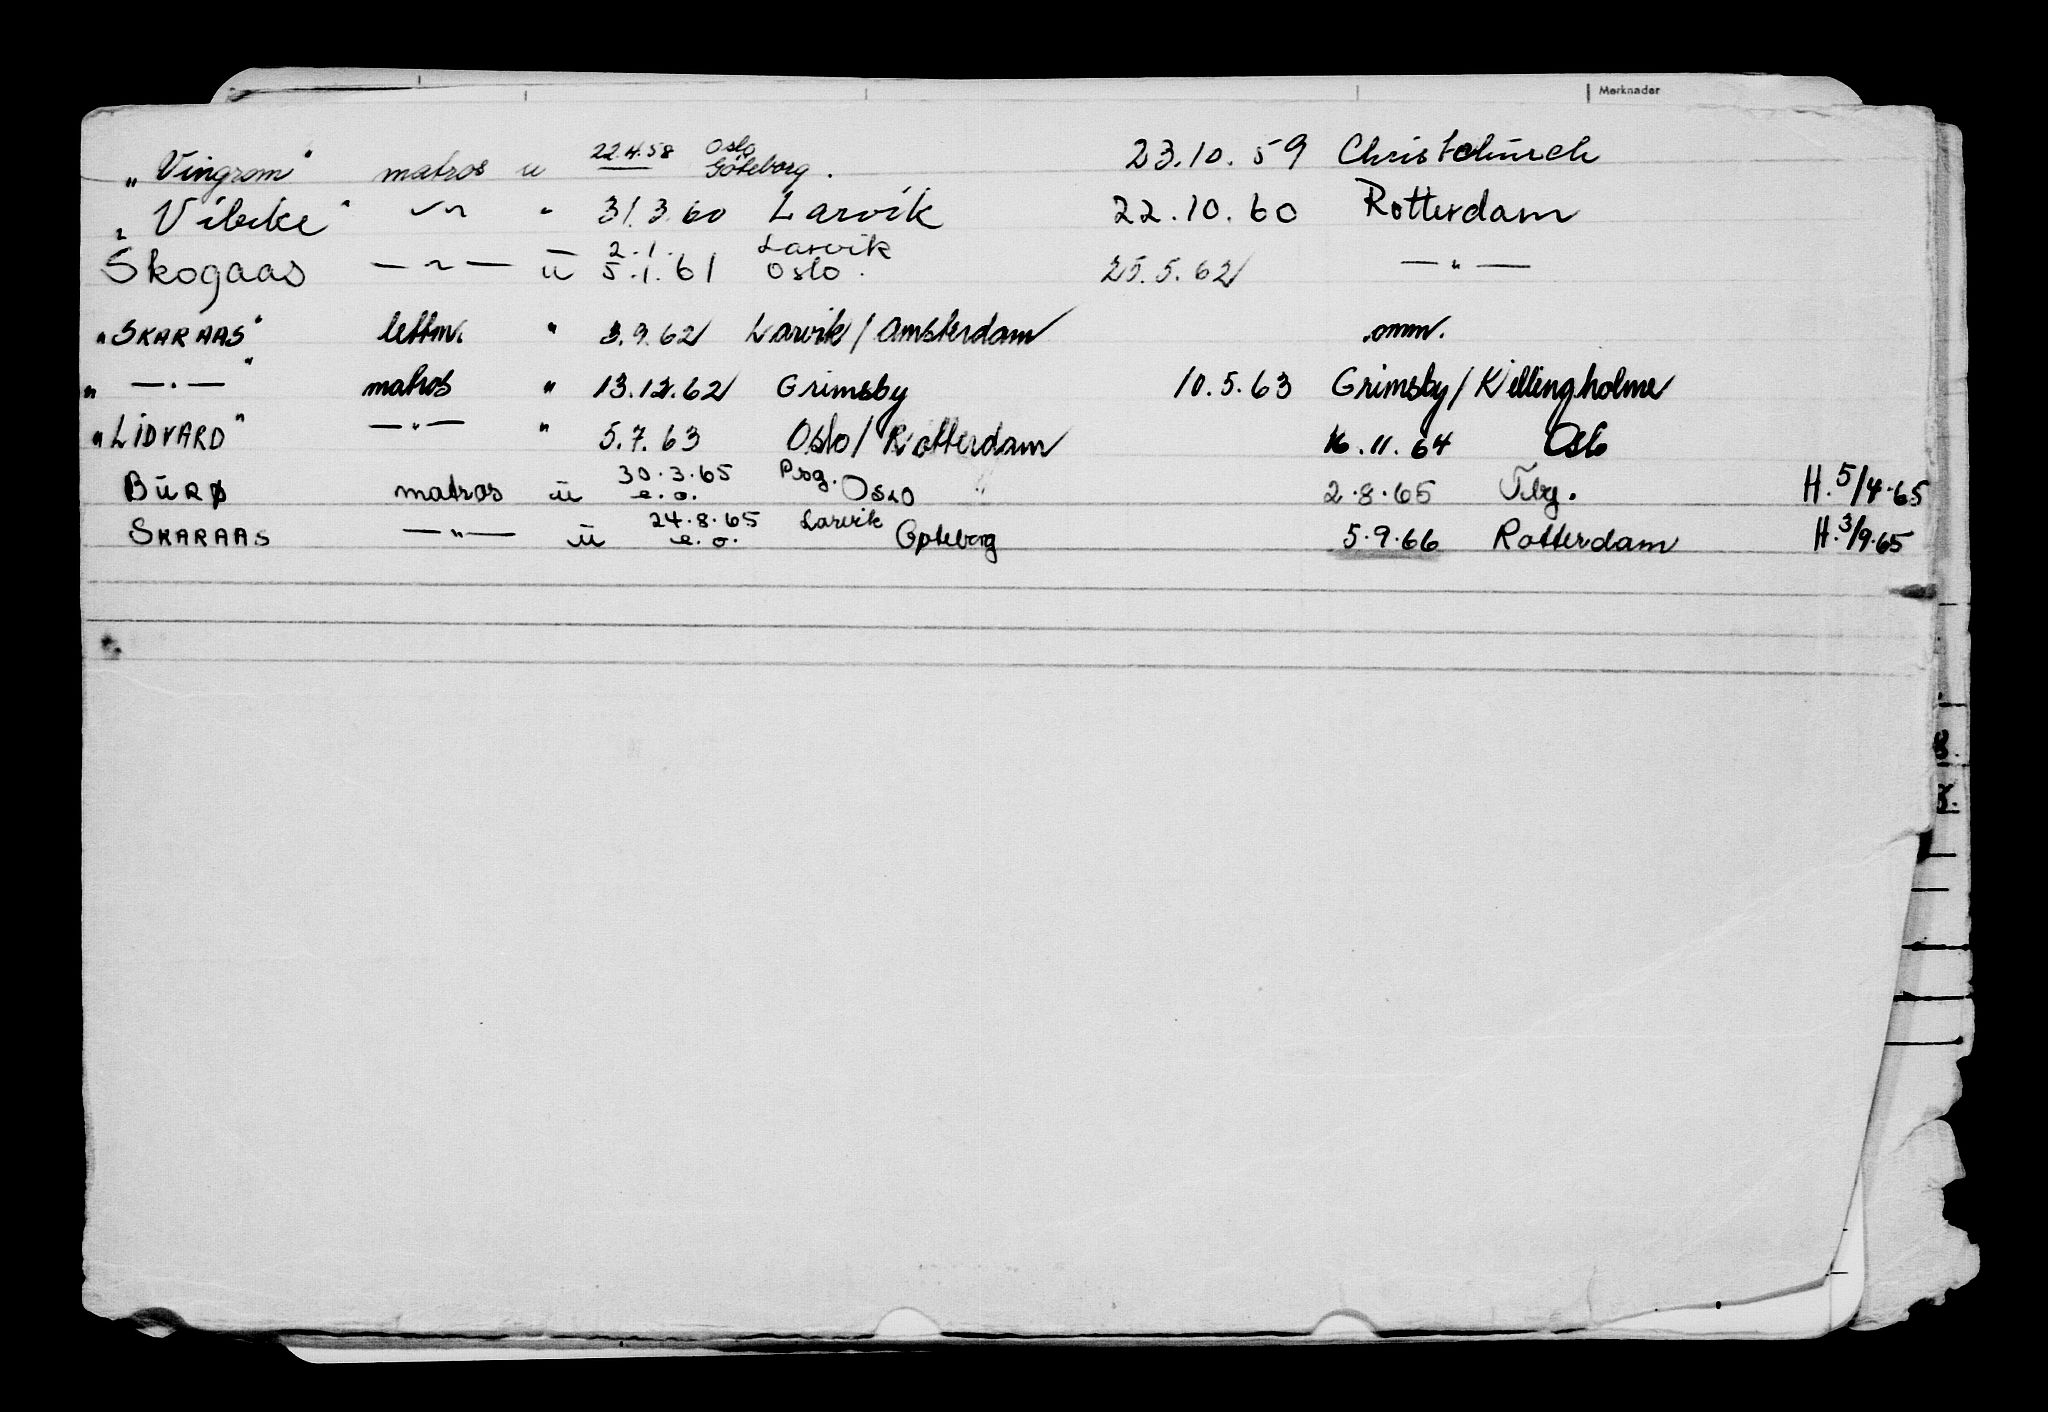 Merknader
„Vingrom" matros u 22.4.58 Oslo Göteborg. 23.10.59 Christchurch
„Vibeke" -"- " 31.3.60 Larvik 22.10.60 Rotterdam
Skogaas -"- u 2.1. 5.1.61 Larvik Oslo. 25.5.62 -"-
„SKARAAS" lettm. " 3.9.62 Larvik/Amsterdam omm.
" -"- " matros " 13.12.62 Grimsby 10.5.63 Grimsby/Killingholme
„LIDVARD" -"- " 5.7.63 Oslo/Rotterdam 16.11.64 Oslo
BURØ matros u 30.3.65 e.o. Psg. Oslo 2.8.65 Tbg. H.5/4.65
SKARAAS -"- u 24.8.65 e.o. Larvik Gøteborg 5.9.66 Rotterdam H.3/9.65